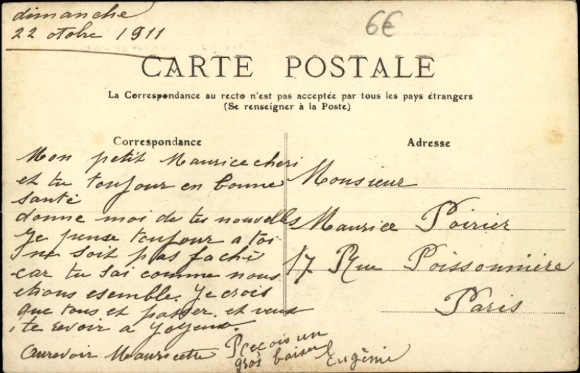 dimanche
22 otobre 1911
6€
CARTE POSTALE
La Correspondance au recto n'est pas acceptée par tous les pays étrangers
(Se renseigner à la Poste)
Correspondance
Mon petit Maurice cheri
et tu toujour en bonne
santé
donne moi de tes nouvelles
je pense toujour a toi
ne soit pas faché
car tu sai comme nous
etions esemble. je crois
que tous et passer. et veus
te revoir a
Aurevoir Mauricette
Reçois un
gros baiser
Eugénie
Adresse
Monsieur
Maurice Poirier
17 Rue Poissonnière
Paris